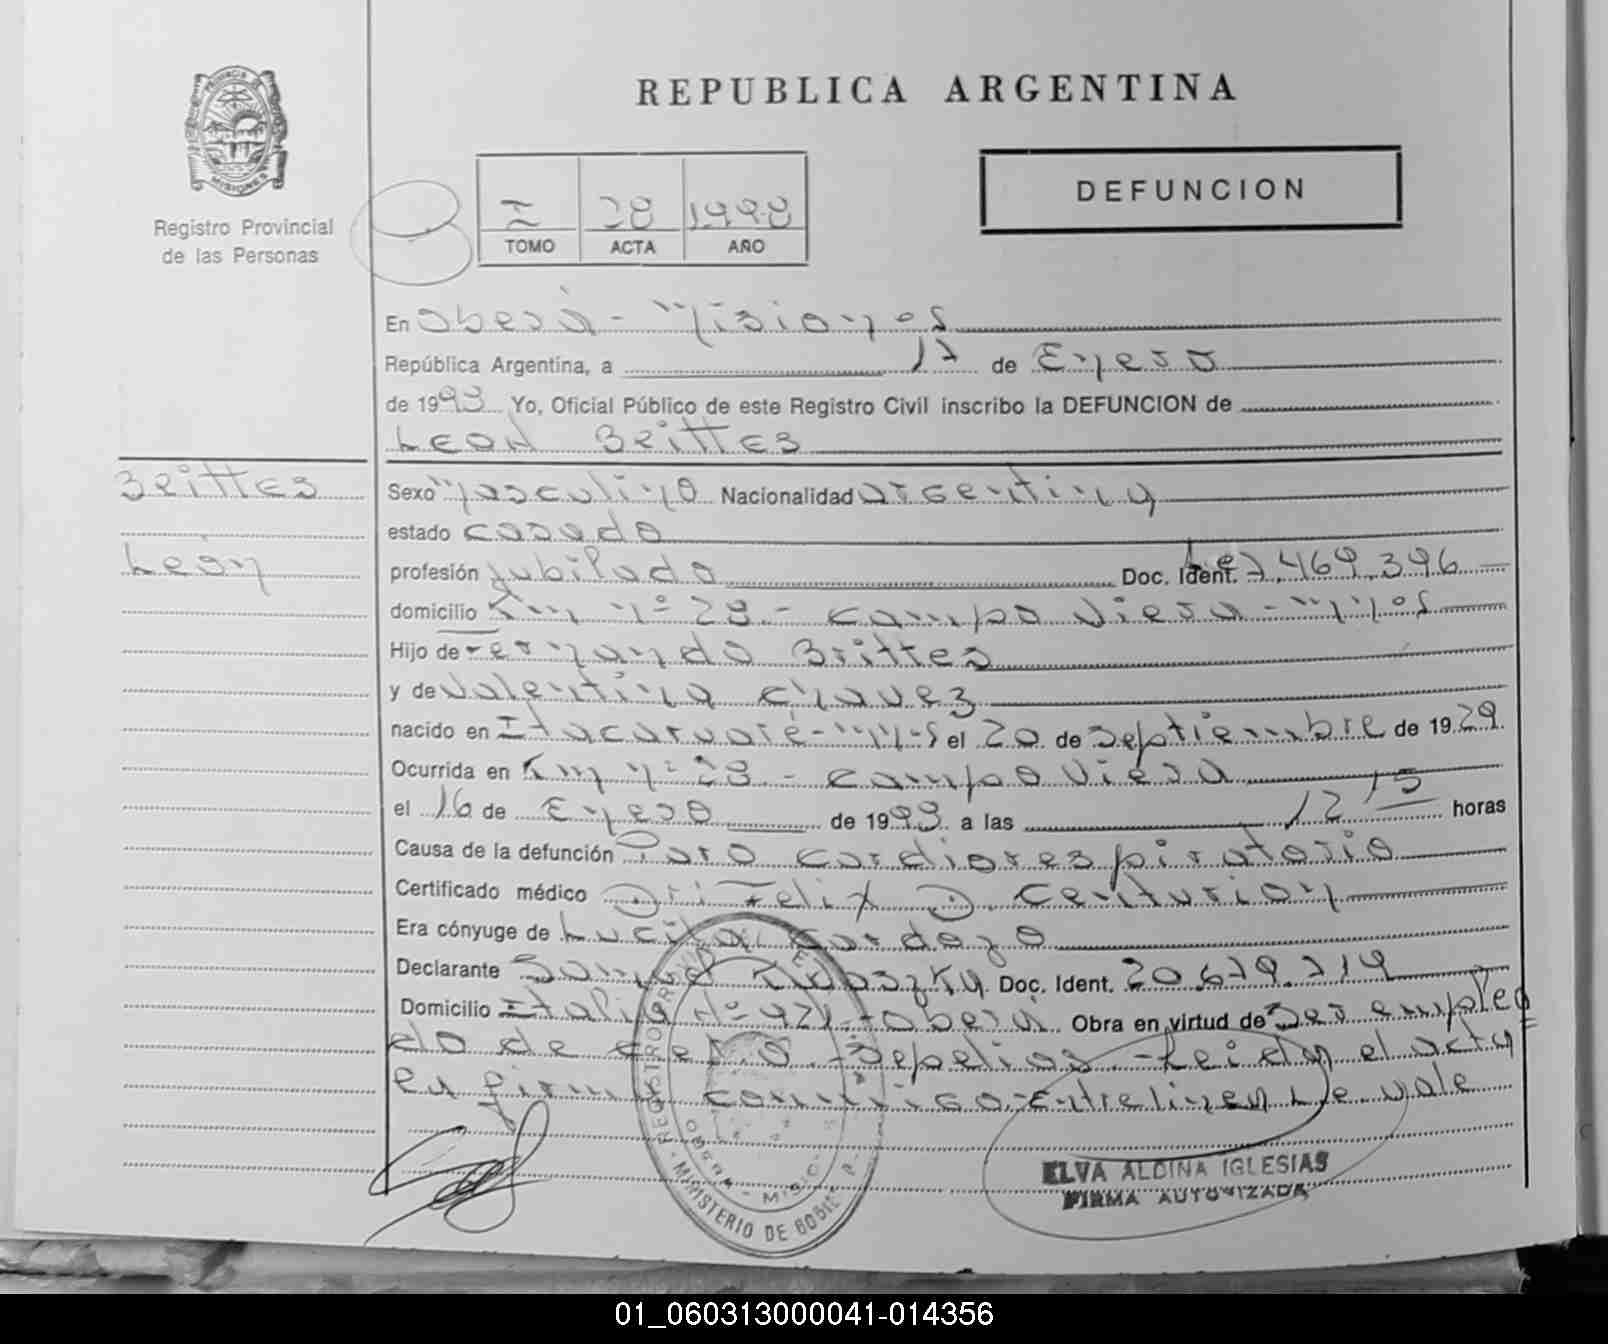 PROVINCIA DE
MISIONES
Registro Provincial
de las Personas
REPUBLICA ARGENTINA
I 28 1998
TOMO ACTA AÑO
DEFUNCION
En Oberá - Misiones
República Argentina, a 17 de Enero
de 1998 Yo, Oficial Público de este Registro Civil inscribo la DEFUNCION de
LEON Brittes
Brittes
León
Sexo Masculino Nacionalidad argentina
estado casado
profesión jubilado Doc. Ident. Le 7.469.396
domicilio Km nº 28 - Campo Viera - Mnes
Hijo de Fernando Brittes
y de Valentina Chavez
nacido en Itacaruaré - Mnes el 20 de Septiembre de 1929
Ocurrida en Km nº 28 - Campo Viera
el 16 de Enero de 1998 a las 12 15 horas
Causa de la defunción Paro cardiorespiratorio
Certificado médico Dr: Felix D. Centurion
Era cónyuge de Lucila Cardozo
Declarante Samuel Doc. Ident. 20.679.719
Domicilio Italia Nº 421 - Oberá Obra en virtud de Ser emplea
do de Sepelios. - Leida el acta
la firma conmigo - Entrelinea Le vale
REGISTRO PROVINCIAL
OBERA - MISIONES
MINISTERIO DE GOBIERNO
ELVA ALCINA IGLESIAS
FIRMA AUTORIZADA
01_060313000041-014356